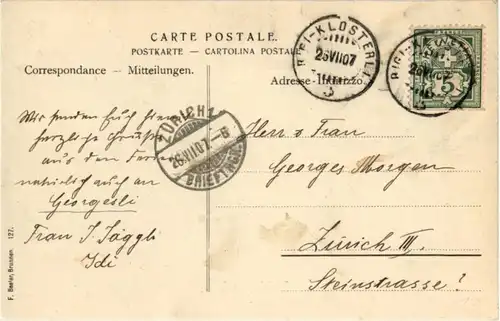 CARTE POSTALE.
POSTKARTE — CARTOLINA POSTALE
Correspondance — Mitteilungen.
Adresse
RIGI-KLOSTERLI
26 VII 07
5
ZÜRICH 1
26.VII.07.
BRIEFTRÄG.
Wir senden Euch
herzliche Grüsse
aus den Ferien
natürlich auch an
Georgesli
Frau J. Jäggli
Idi
Herr u Frau
Georges Morgen
Zürich III.
Steinstrasse?
F. Beeler, Brunnen. 127.